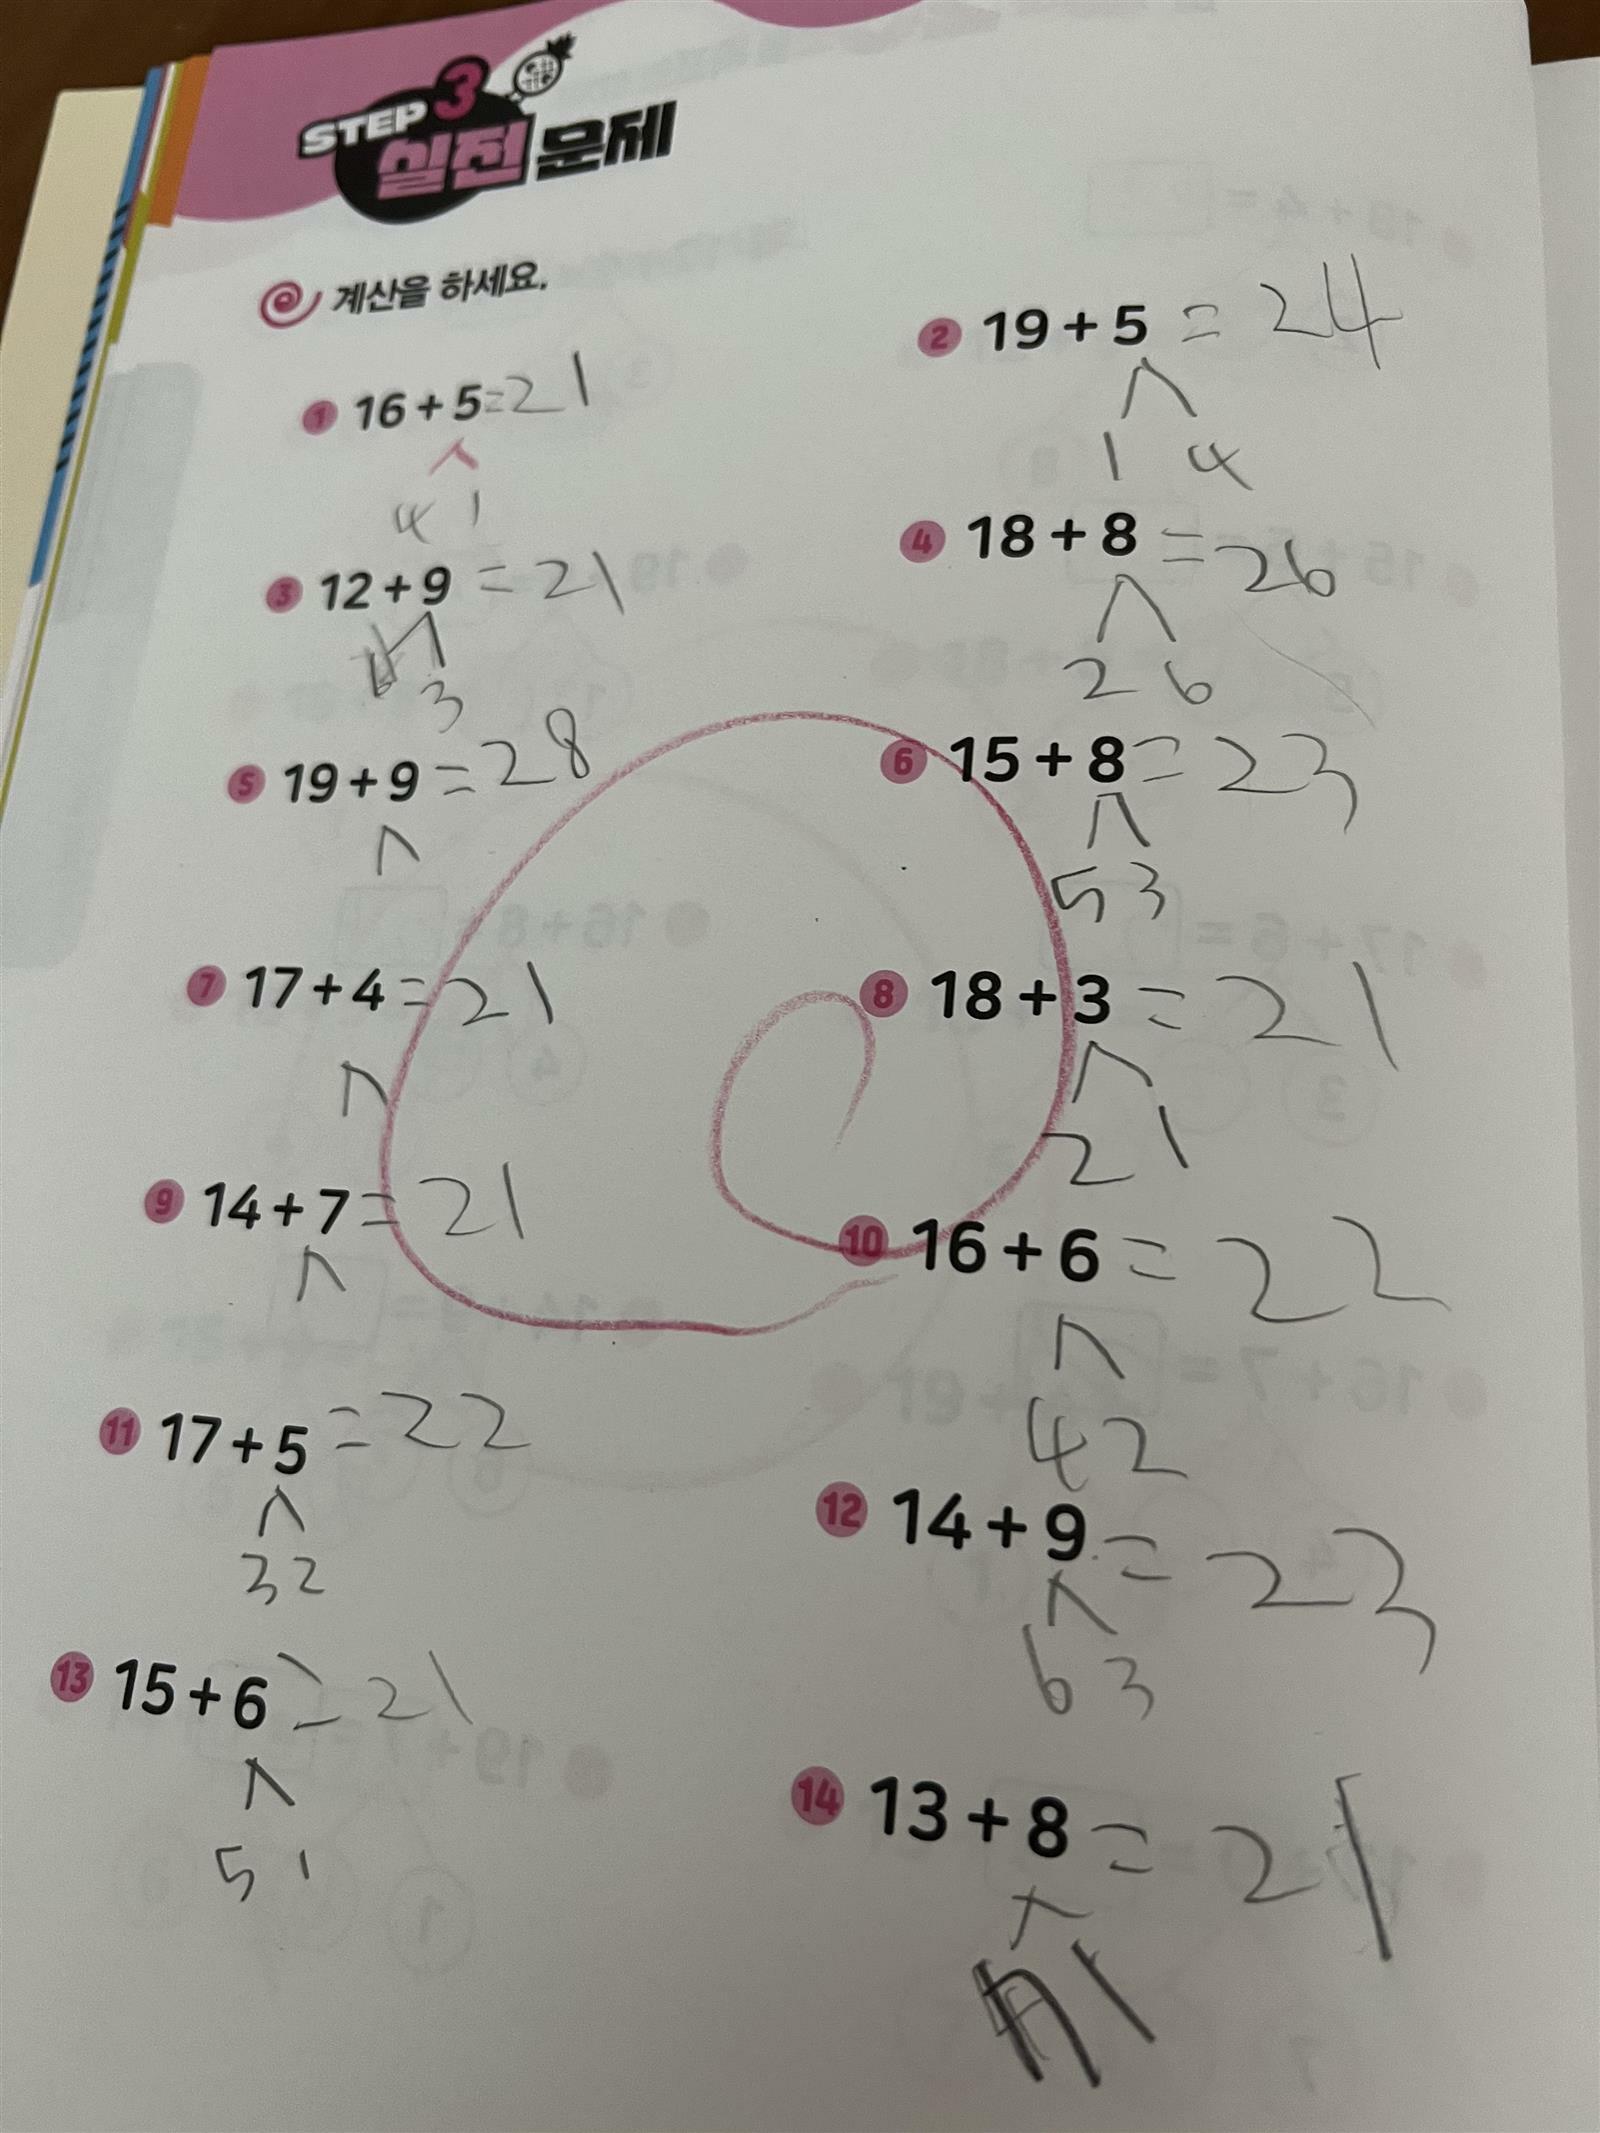 STEP 3
실전 문제
계산을 하세요.
1 16+5=21
4 1
2 19+5=24
1 4
3 12+9=21
3
4 18+8=26
2 6
5 19+9=28
6 15+8=23
5 3
7 17+4=21
8 18+3=21
2 1
9 14+7=21
10 16+6=22
4 2
11 17+5=22
3 2
12 14+9=23
6 3
13 15+6=21
5 1
14 13+8=21
7 1